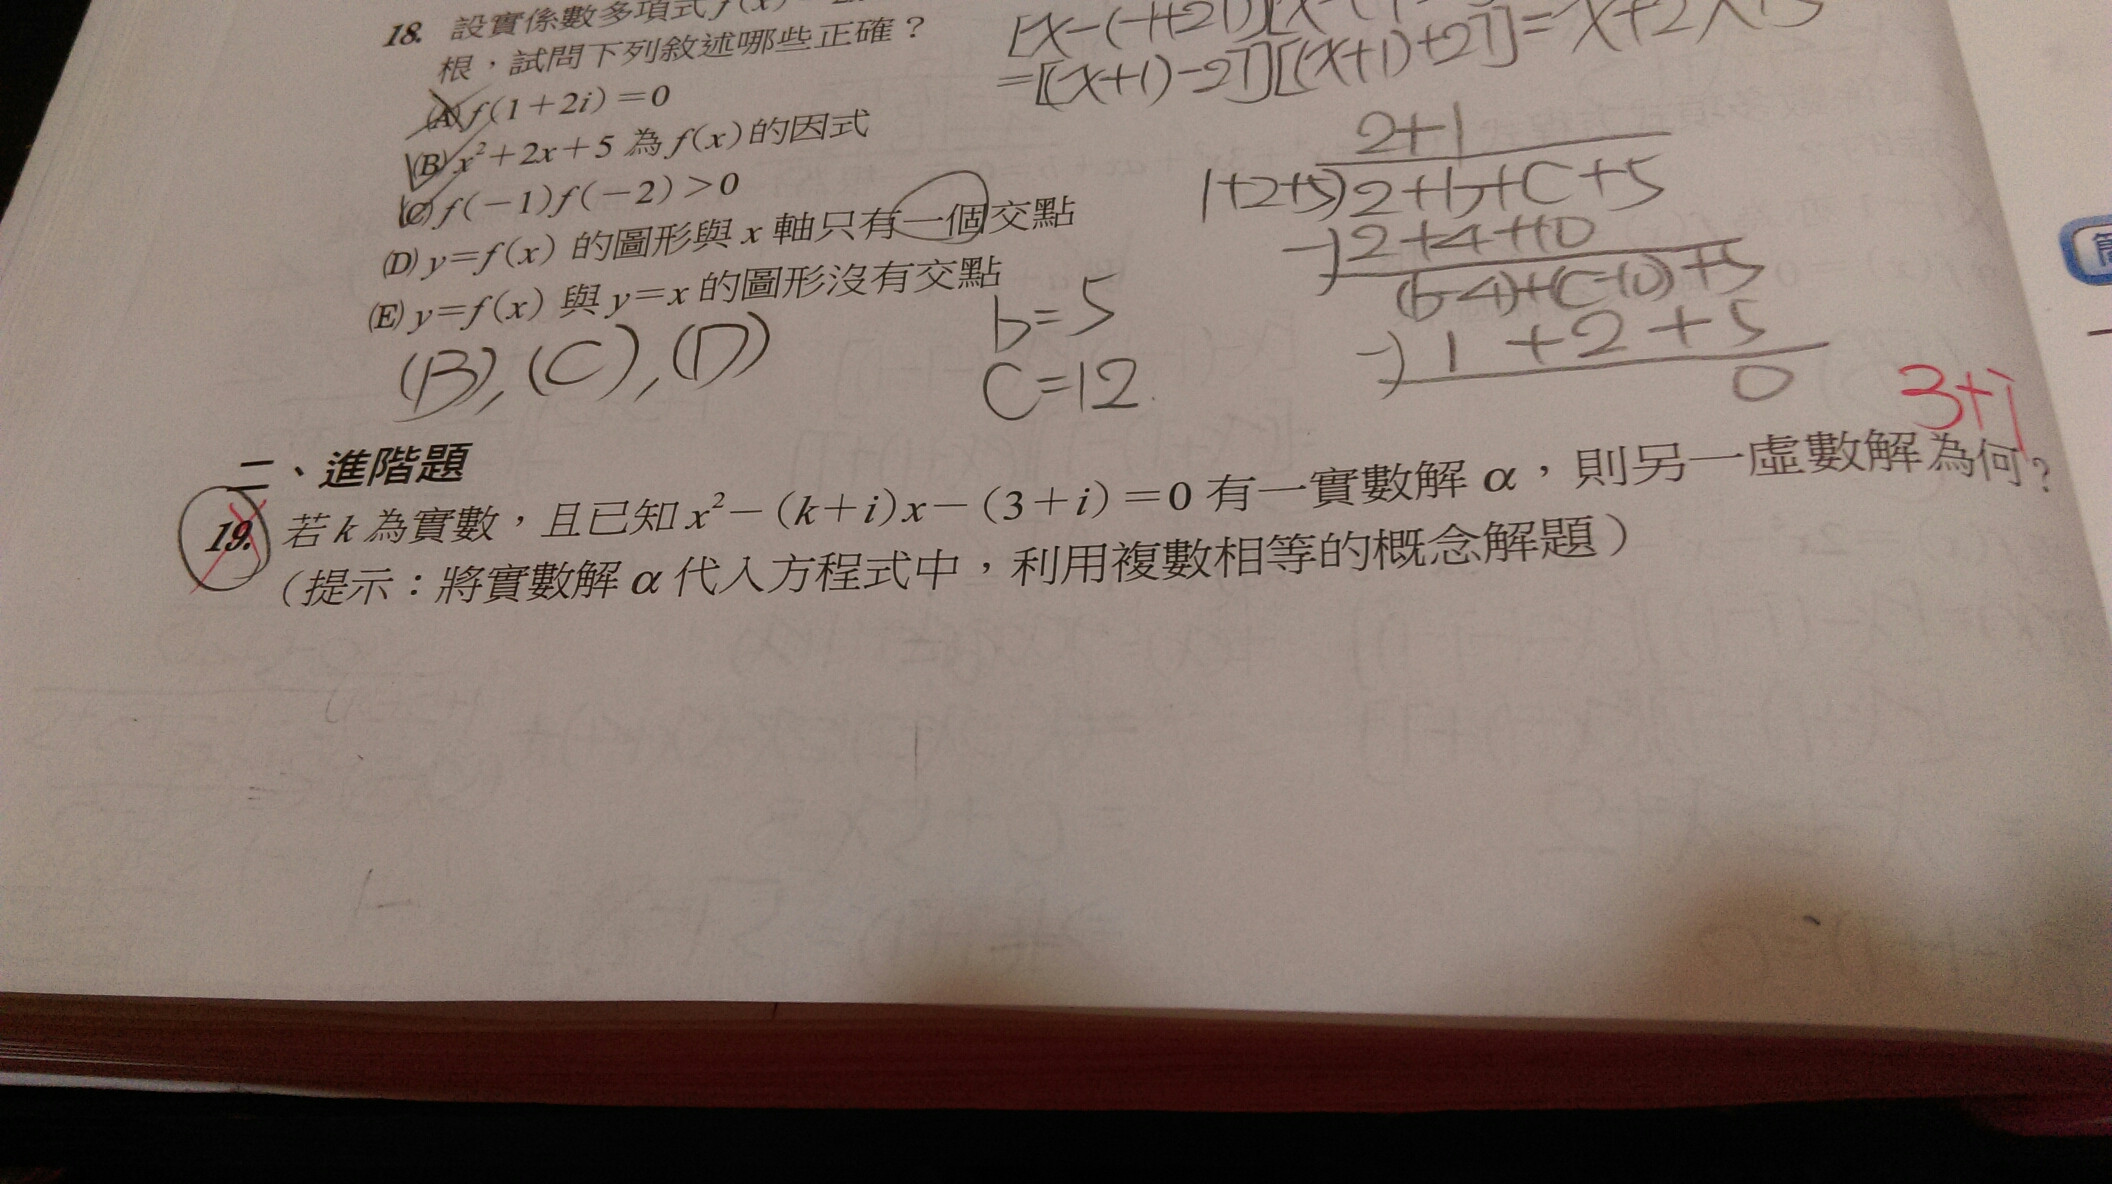 18. 設實係數多項式f(x)
根，試問下列敘述哪些正確？
(A) f(1+2i)=0
(B) x²+2x+5 為 f(x) 的因式
(C) f(-1)f(-2)>0
(D) y=f(x) 的圖形與 x 軸只有一個交點
(E) y=f(x) 與 y=x 的圖形沒有交點
(B),(C),(D)
b=5
C=12
=[(x+1)-2i][(x+1)+2i]=x²+2x+5
2+1
1+2+5)2+b+C+5
-)2+4+10
(b-4)+(C-10)+5
-)1+2+5
0
3+i
二、進階題
19. 若 k 為實數，且已知 x²-(k+i)x-(3+i)=0 有一實數解 α，則另一虛數解為何？
（提示：將實數解 α 代入方程式中，利用複數相等的概念解題）